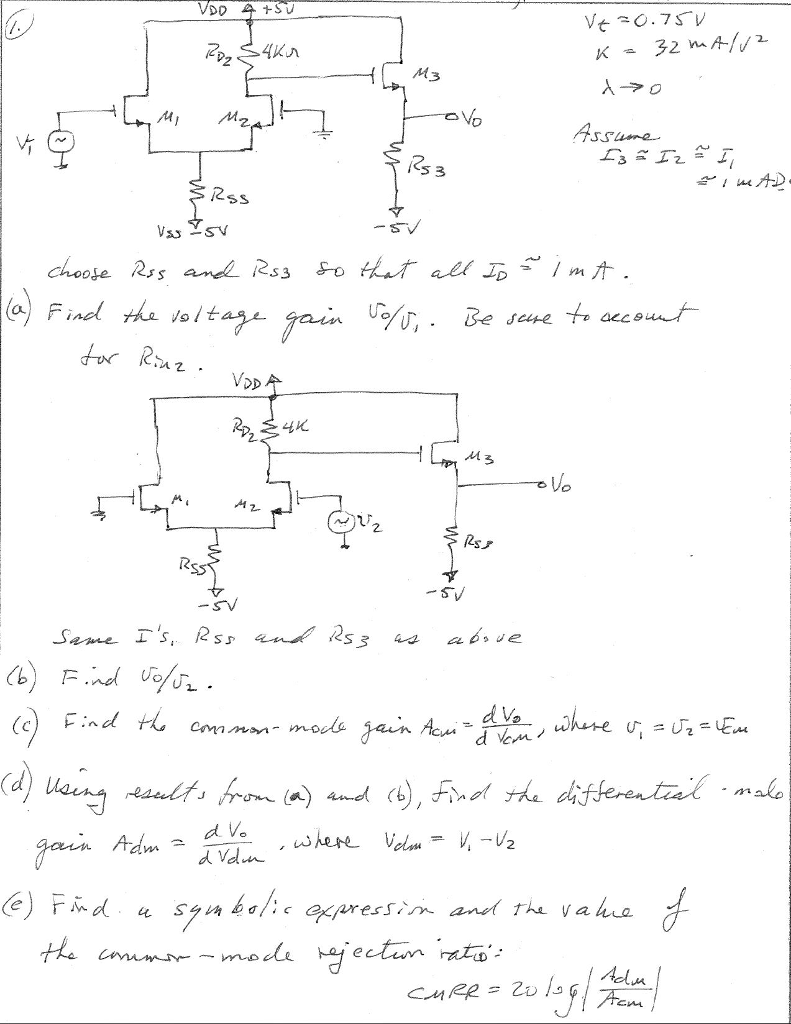 1.
VDD +5V
Vt = 0.75V
K = 32 mA/V²
λ → 0
RD2 4KΩ
M3
M1 M2
Vo
V1
Assume
I3 ≅ I2 ≅ I1
≅ 1 mAD
RS3
RSS
VSS -5V
-5V
choose RSS and RS3 so that all ID ≅ 1 mA.
(a) Find the voltage gain vo/v1. Be sure to account
for Rin2.
VDD
RD2 4K
M3
M1 M2
Vo
v2
RSS
RS3
-5V
-5V
Same I's, RSS and RS3 as above
(b) Find vo/v2.
(c) Find the common-mode gain Acm = dVo/dVcm, where v1 = v2 = vcm
(d) Using results from (a) and (b), find the differential-mode
gain Adm = dVo/dVdm, where Vdm = V1 - V2
(e) Find a symbolic expression and the value of
the common-mode rejection ratio:
CMRR = 20 log |Adm/Acm|